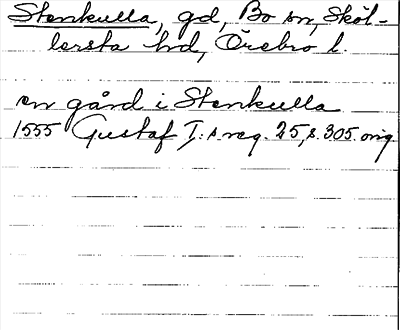 Stenkulla, gd, Bo sn, Sköl-
lersta hd, Örebro l.
en gård i Stenkulla
1555 Gustaf I:s reg. 25, s. 305. orig.